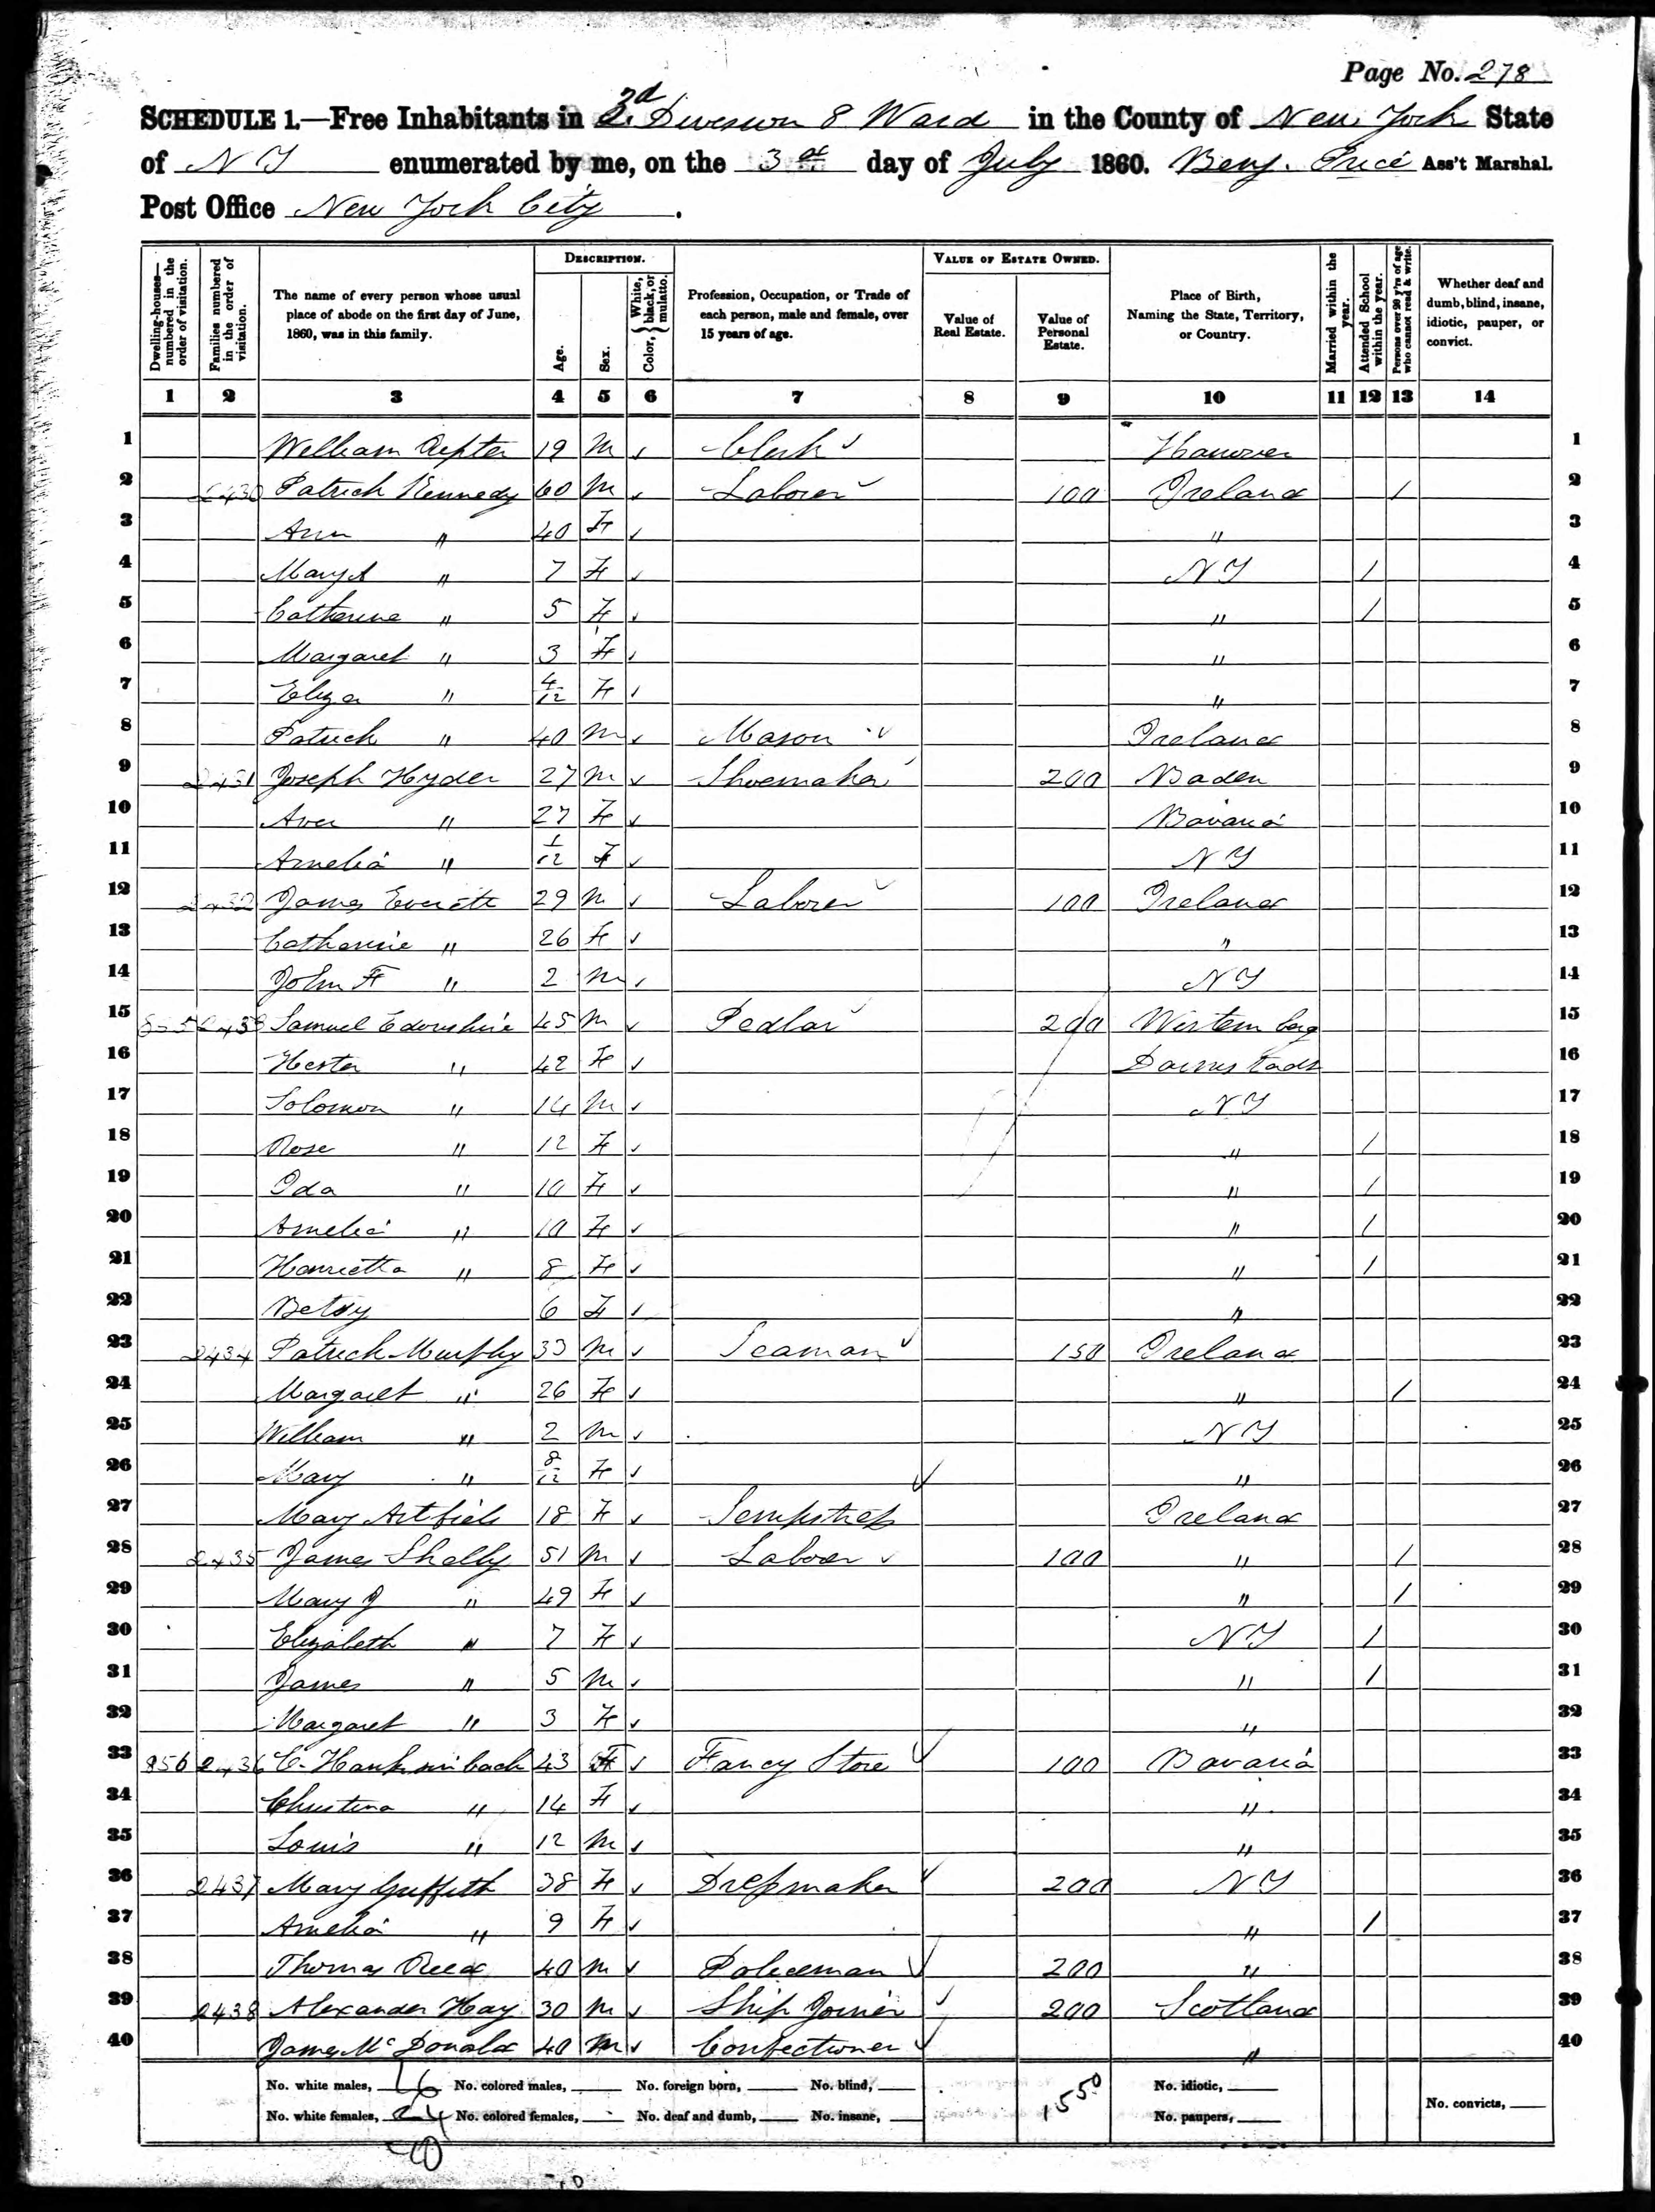 Page No. 278
SCHEDULE 1.—Free Inhabitants in 2d Division 8 Ward in the County of New York State
of N Y enumerated by me, on the 3d day of July 1860. Benj. Price Ass't Marshal.
Post Office New York City.
Dwelling-houses— numbered in the order of visitation.
Families numbered in the order of visitation.
The name of every person whose usual place of abode on the first day of June, 1860, was in this family.
DESCRIPTION.
Age.
Sex.
Color, { White, black, or mulatto.
Profession, Occupation, or Trade of each person, male and female, over 15 years of age.
VALUE OF ESTATE OWNED.
Value of Real Estate.
Value of Personal Estate.
Place of Birth, Naming the State, Territory, or Country.
Married within the year.
Attended School within the year.
Persons over 20 y'rs of age who cannot read & write.
Whether deaf and dumb, blind, insane, idiotic, pauper, or convict.
1 2 3 4 5 6 7 8 9 10 11 12 13 14
1 William 19 M ✓ Clerk ✓ Hanover 1
2 2430 Patrick Kennedy 60 M ✓ Laborer ✓ 100 Ireland / 2
3 Ann " 40 F ✓ " 3
4 Mary A " 7 F ✓ N Y / 4
5 Catherine " 5 F ✓ " / 5
6 Margaret " 3 F ✓ " 6
7 Eliza " 4/12 F ✓ " 7
8 Patrick " 40 M ✓ Mason ✓ Ireland 8
9 2431 Joseph Hyder 27 M ✓ Shoemaker 200 Baden 9
10 " 27 F ✓ Bavaria 10
11 Amelia " 1/12 F ✓ N Y 11
12 2432 James Everett 29 M ✓ Laborer ✓ 100 Ireland 12
13 Catharine " 26 F ✓ " 13
14 John F " 2 M ✓ N Y 14
15 855 2433 Samuel 45 M ✓ Pedlar ✓ 200 Wirtemberg 15
16 Hester " 42 F ✓ Darmstadt 16
17 Solomon " 14 M ✓ N Y 17
18 Rose " 12 F ✓ " / 18
19 Ida " 10 F ✓ " / 19
20 Amelia " 10 F ✓ " / 20
21 Henrietta " 8 F ✓ " / 21
22 Betsy 6 F ✓ " 22
23 2434 Patrick Murphy 33 M ✓ Seaman ✓ 150 Ireland 23
24 Margaret " 26 F ✓ " / 24
25 William " 2 M ✓ N Y 25
26 Mary " 8/12 F ✓ ✓ " 26
27 Mary 18 F ✓ Sempstress Ireland 27
28 2435 James Shelly 51 M ✓ Laborer ✓ 100 " / 28
29 Mary J " 49 F ✓ " / 29
30 Elizabeth " 7 F ✓ N Y / 30
31 James " 5 M ✓ " / 31
32 Margaret " 3 F ✓ " 32
33 856 2436 C. 43 F ✓ Fancy Store ✓ 100 Bavaria 33
34 Christina " 14 F ✓ " 34
35 Louis " 12 M ✓ " 35
36 2437 Mary Griffith 38 F ✓ Dressmaker ✓ 200 N Y 36
37 Amelia " 9 F ✓ " / 37
38 Thomas Reed 40 M ✓ Policeman ✓ 200 " 38
39 2438 Alexander Hay 30 M ✓ Ship Joiner ✓ 200 Scotland 39
40 James McDonald 40 M ✓ Confectioner ✓ " 40
No. white males, 16 No. colored males, No. foreign born, No. blind, 1550 No. idiotic,
No. white females, 24 No. colored females, No. deaf and dumb, No. insane, No. paupers, No. convicts,
40